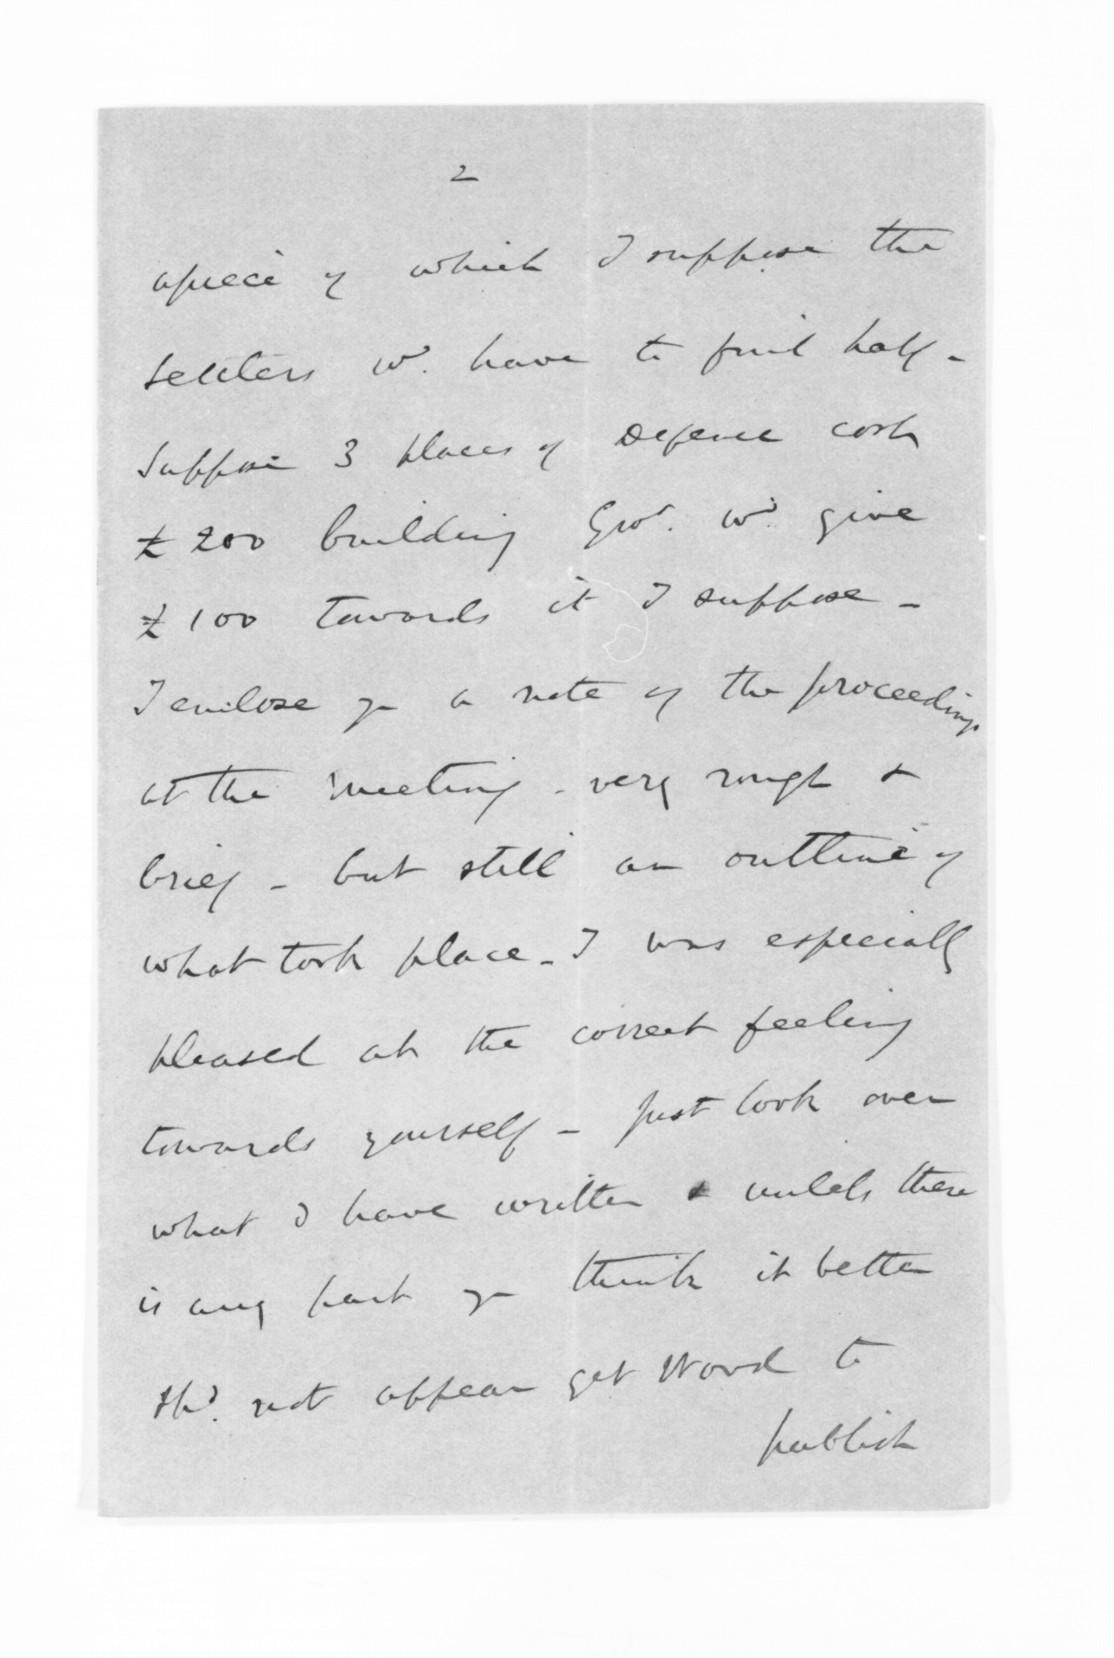 2
apiece of which I suppose the
settlers wd. have to find half -
Suppose 3 places of Defence cost
£200 building Govt. wd. give
£100 towards it I suppose -
I enclose you a note of the proceedings
at the meeting - very rough &
brief - but still an outline of
what took place - I was especially
pleased at the correct feeling
towards yourself - Just look over
what I have written & unless there
is any part you think it better
shd. not appear get Wood to
publish